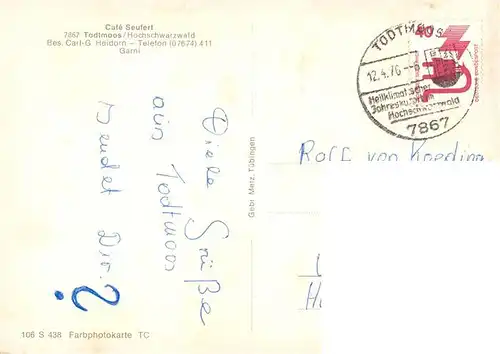 Café Seufert
7867 Todtmoos/Hochschwarzwald
Bes. Carl-G. Heidorn – Telefon (07674) 411
Garni
Viele Grüße
aus Todtmoos
sendet Dir
?
Gebr. Metz, Tübingen
TODTMOOS
12.4.76
Heilklimatischer
Jahreskurort im
Hochschwarzwald
7867
40
DEUTSCHE BUNDESPOST
Rolf von
106 S 438 Farbphotokarte TC